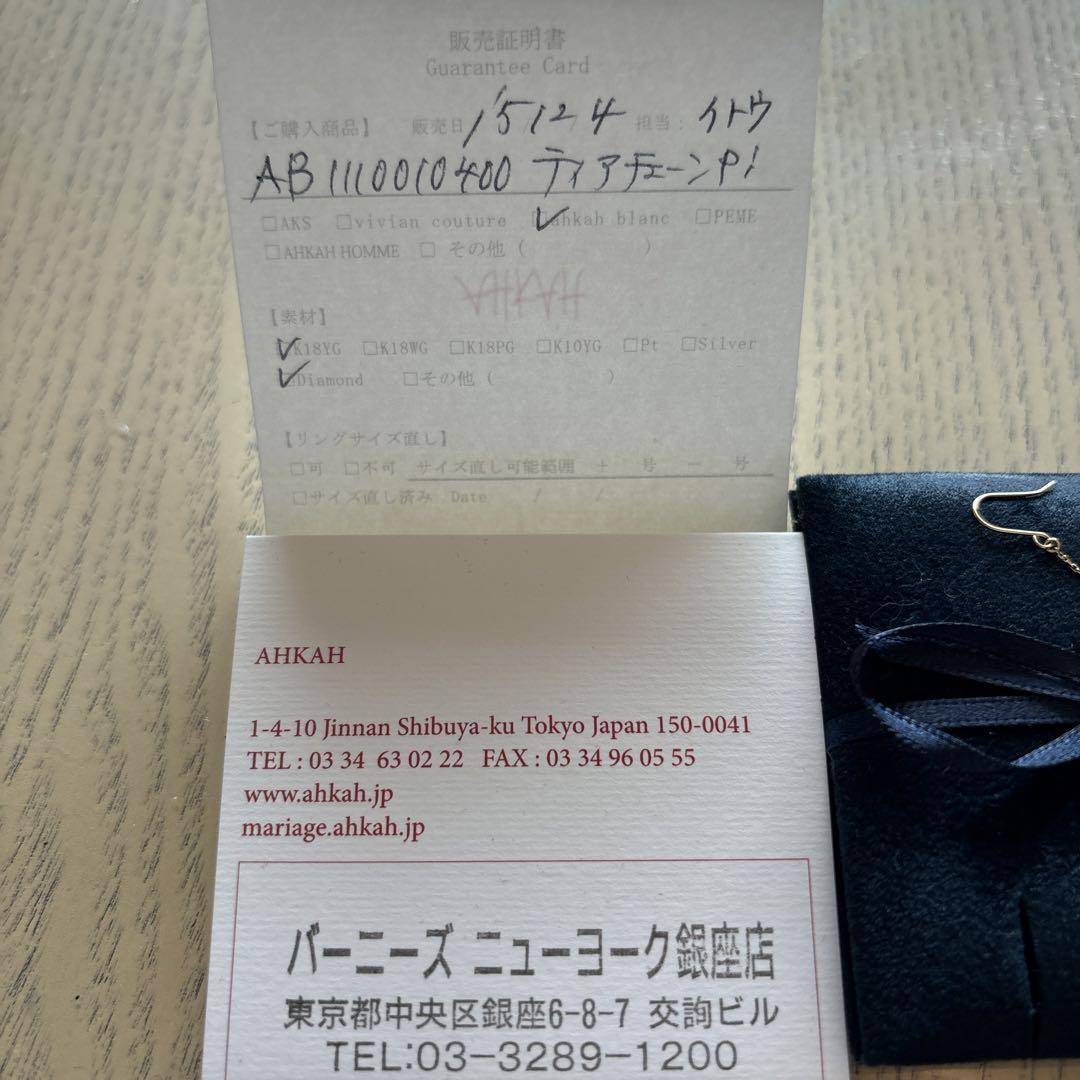 販売証明書
Guarantee Card
【ご購入商品】 販売日 '15 12 4 担当: イトウ
AB1110010400 ティアチェーンP!
□AKS □vivian couture ☑ahkah blanc □PEME
□AHKAH HOMME □ その他 ( )
AHKAH
【素材】
☑K18YG □K18WG □K18PG □K10YG □Pt □Silver
☑Diamond □その他 ( )
【リングサイズ直し】
□可 □不可 サイズ直し可能範囲 + 号 － 号
□サイズ直し済み Date / /
AHKAH
1-4-10 Jinnan Shibuya-ku Tokyo Japan 150-0041
TEL : 03 34 63 02 22 FAX : 03 34 96 05 55
www.ahkah.jp
mariage.ahkah.jp
バーニーズ ニューヨーク銀座店
東京都中央区銀座6-8-7 交詢ビル
TEL:03-3289-1200